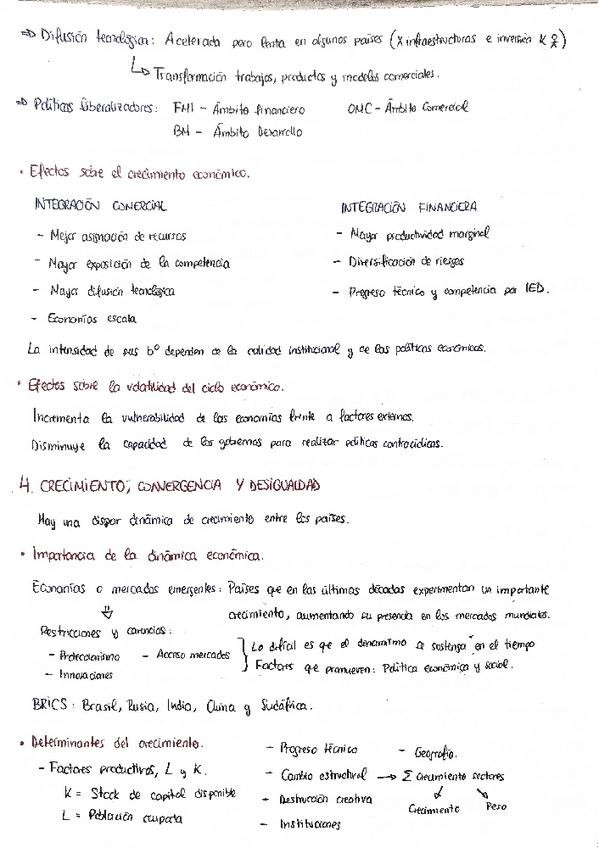 ⇒ Difusión tecnológica: Acelerada pero lenta en algunos países (x infraestructuras e inversión K
↳ Transformación trabajos, productos y modelos comerciales.
⇒ Políticas liberalizadoras: FMI - Ámbito financiero OMC - Ámbito Comercial
BM - Ámbito Desarrollo
• Efectos sobre el crecimiento económico.
INTEGRACIÓN COMERCIAL INTEGRACIÓN FINANCIERA
- Mejor asignación de recursos - Mayor productividad marginal
- Mayor exposición de la competencia - Diversificación de riesgos
- Mayor difusión tecnológica - Progreso técnico y competencia por IED.
- Economías escala
La intensidad de sus bº dependen de la calidad institucional y de las políticas económicas.
• Efectos sobre la volatilidad del ciclo económico.
Incrementa la vulnerabilidad de las economías frente a factores externos.
Disminuye la capacidad de los gobiernos para realizar políticas contracíclicas.
4. CRECIMIENTO, CONVERGENCIA Y DESIGUALDAD
Hay una dispar dinámica de crecimiento entre los países.
• Importancia de la dinámica económica.
Economías o mercados emergentes: Países que en las últimas décadas experimentan un importante
crecimiento, aumentando su presencia en los mercados mundiales.
⇓
Restricciones y carencias:
- Proteccionismo - Acceso mercados } Lo difícil es que el dinamismo se sostenga en el tiempo
- Innovaciones Factores que promueven: Política económica y social.
BRICS: Brasil, Rusia, India, China y Sudáfrica.
• Determinantes del crecimiento. - Progreso técnico - Geografía.
- Factores productivos, L y K. - Cambio estructural → Σ Crecimiento sectores
K = Stock de capital disponible - Destrucción creativa Crecimiento Peso
L = Población ocupada - Instituciones